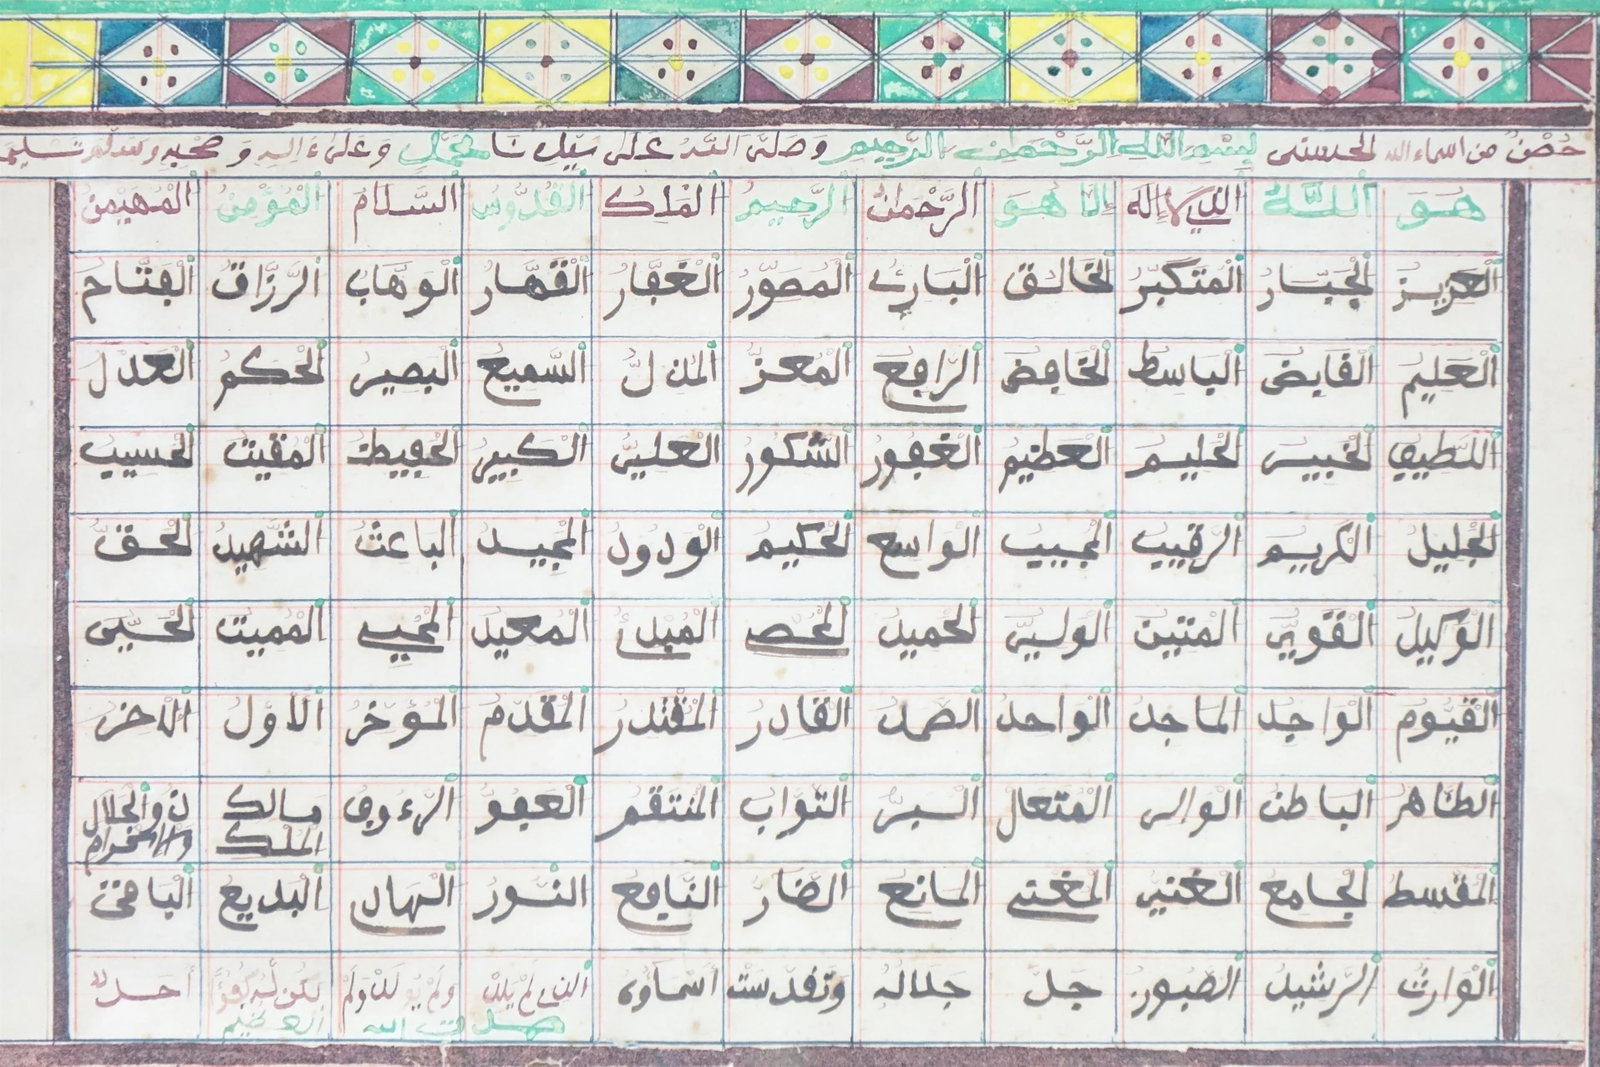 حُصْنٌ من اسماء الله الحسنى بِسْمِ اللهِ الرَّحْمٰنِ الرَّحِيمِ وَصَلَّى اللهُ عَلَى سَيِّدِنَا مُحَمَّدٍ وَعَلَى ءَالِهِ وَصَحْبِهِ وَسَلِّمْ تَسْلِيمًا
هُوَ اللهُ الذِي لَا إِلَهَ إِلَّا هُوَ الرَّحْمٰنُ الرَّحِيمُ المَلِكُ القُدُّوسُ السَّلَامُ المُؤْمِنُ المُهَيْمِنُ
العَزِيزُ الجَبَّارُ المُتَكَبِّرُ الخَالِقُ البَارِئُ المُصَوِّرُ الغَفَّارُ القَهَّارُ الوَهَّابُ الرَّزَّاقُ الفَتَّاحُ
العَلِيمُ القَابِضُ البَاسِطُ الخَافِضُ الرَّافِعُ المُعِزُّ المُذِلُّ السَّمِيعُ البَصِيرُ الحَكَمُ العَدْلُ
اللَّطِيفُ الخَبِيرُ الحَلِيمُ العَظِيمُ الغَفُورُ الشَّكُورُ العَلِيُّ الكَبِيرُ الحَفِيظُ المُقِيتُ الحَسِيبُ
الجَلِيلُ الكَرِيمُ الرَّقِيبُ المُجِيبُ الوَاسِعُ الحَكِيمُ الوَدُودُ المَجِيدُ البَاعِثُ الشَّهِيدُ الحَقُّ
الوَكِيلُ القَوِيُّ المَتِينُ الوَلِيُّ الحَمِيدُ المُحْصِي المُبْدِئُ المُعِيدُ المُحْيِي المُمِيتُ الحَيُّ
القَيُّومُ الوَاجِدُ المَاجِدُ الوَاحِدُ الصَّمَدُ القَادِرُ المُقْتَدِرُ المُقَدِّمُ المُؤَخِّرُ الأَوَّلُ الآخِرُ
الظَّاهِرُ البَاطِنُ الوَالِي المُتَعَالِ البَرُّ التَّوَّابُ المُنْتَقِمُ العَفُوُّ الرَّءُوفُ مَالِكُ المُلْكِ ذُو الجَلَالِ وَالإِكْرَامِ
المُقْسِطُ الجَامِعُ الغَنِيُّ المُغْنِي المَانِعُ الضَّارُّ النَّافِعُ النُّورُ الهَادِي البَدِيعُ البَاقِي
الوَارِثُ الرَّشِيدُ الصَّبُورُ جَلَّ جَلَالُهُ وَتَقَدَّسَتْ أَسْمَاؤُهُ الذِي لَمْ يَلِدْ وَلَمْ يُولَدْ وَلَمْ يَكُن لَّهُ كُفُؤًا أَحَدٌ
صدق الله العظيم